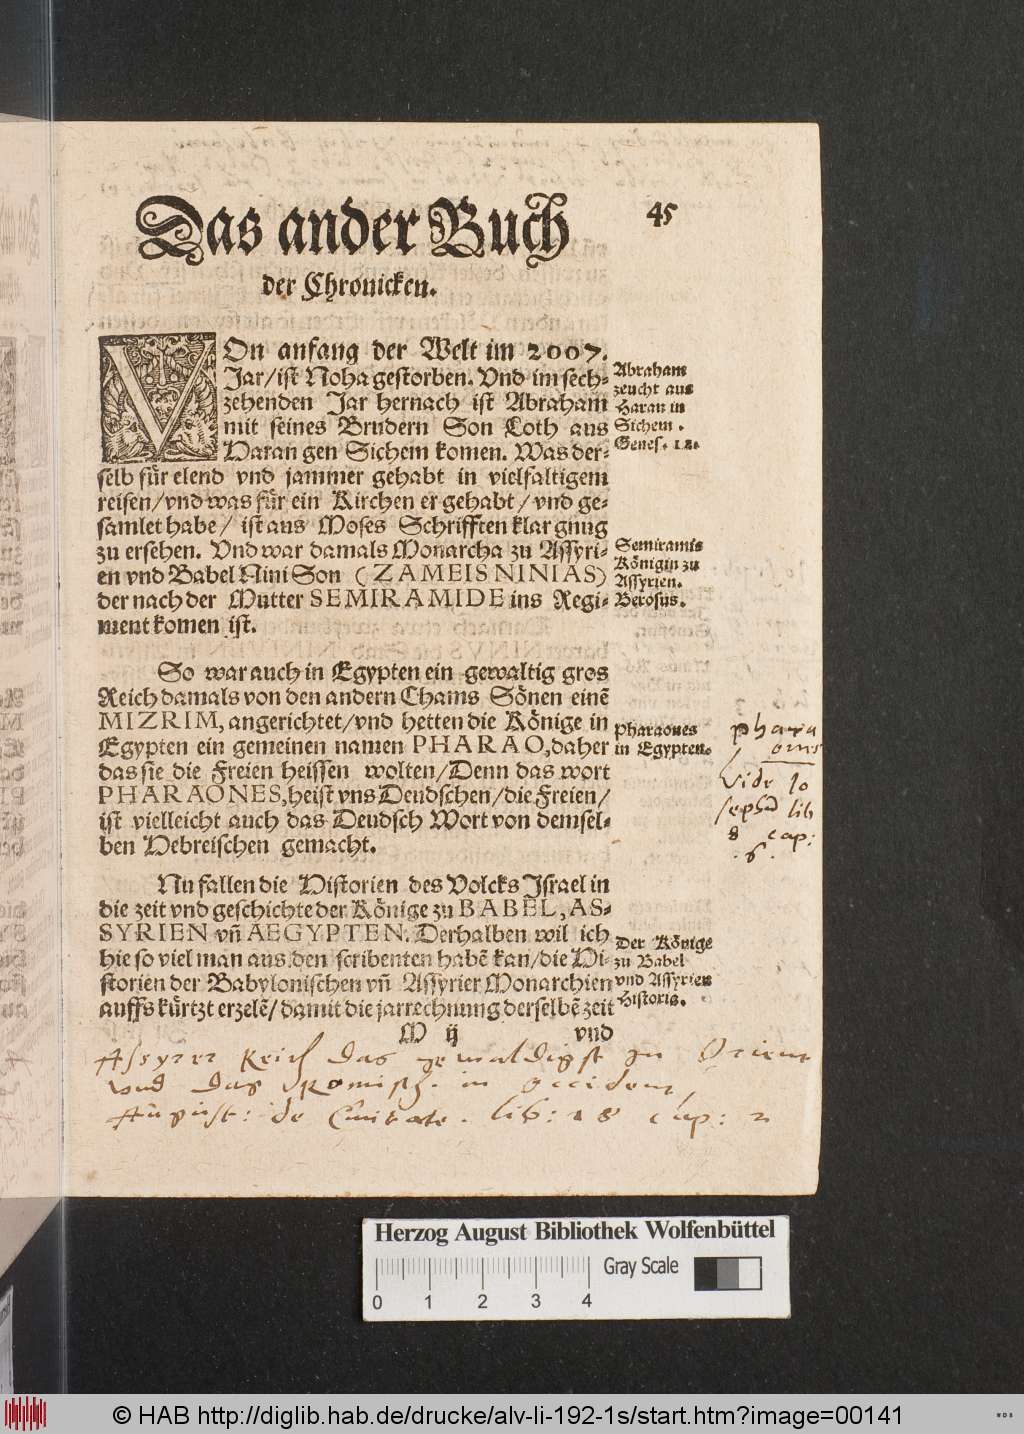 45
Das ander Buch
der Chronicken.
VOn anfang der Welt im 2007.
Jar/ist Noha gestorben. Vnd im sech-
zehenden Jar hernach ist Abraham
mit seines Brudern Son Loth aus
Haran gen Sichem komen. Was der-
selb für elend vnd jammer gehabt in vielfaltigem
reisen/vnd was für ein Kirchen er gehabt/vnd ge-
samlet habe/ ist aus Moses Schrifften klar gnug
zu ersehen. Vnd war damals Monarcha zu Assyri-
en vnd Babel Nini Son (ZAMEIS NINIAS)
der nach der Mutter SEMIRAMIDE ins Regi-
ment komen ist.
Abraham
zeucht aus
Haran in
Sichem.
Genes. 12.
Semiramis
Königin zu
Assyrien.
Berosus.
So war auch in Egypten ein gewaltig gros
Reich damals von den andern Chams Sönen einē
MIZRIM, angerichtet/vnd hetten die Könige in
Egypten ein gemeinen namen PHARAO, daher
das sie die Freien heissen wolten/Denn das wort
PHARAONES, heist vns Deudschen/die Freien/
ist vielleicht auch das Deudsch Wort von demsel-
ben Hebreischen gemacht.
Pharaones
in Egypten.
Phara
onis
Vide Jo
seph lib
8 cap:
6.
Nu fallen die Historien des Volcks Israel in
die zeit vnd geschichte der Könige zu BABEL, AS-
SYRIEN vn̄ AEGYPTEN. Derhalben wil ich
hie so viel man aus den scribenten habē kan/die Hi-
storien der Babylonischen vn̄ Assyrier Monarchien
auffs kürtzt erzelē/damit die jarrechnung derselbē zeit
M ij vnd
Der Könige
zu Babel
vnd Assyrien
Historia.
Assyrer Reich das gewaldigst in Orient
vnd das Romisch. in occident
August: de Ciuitate. lib: 18 cap: 2
Herzog August Bibliothek Wolfenbüttel
Gray Scale
0 1 2 3 4
© HAB http://diglib.hab.de/drucke/alv-li-192-1s/start.htm?image=00141